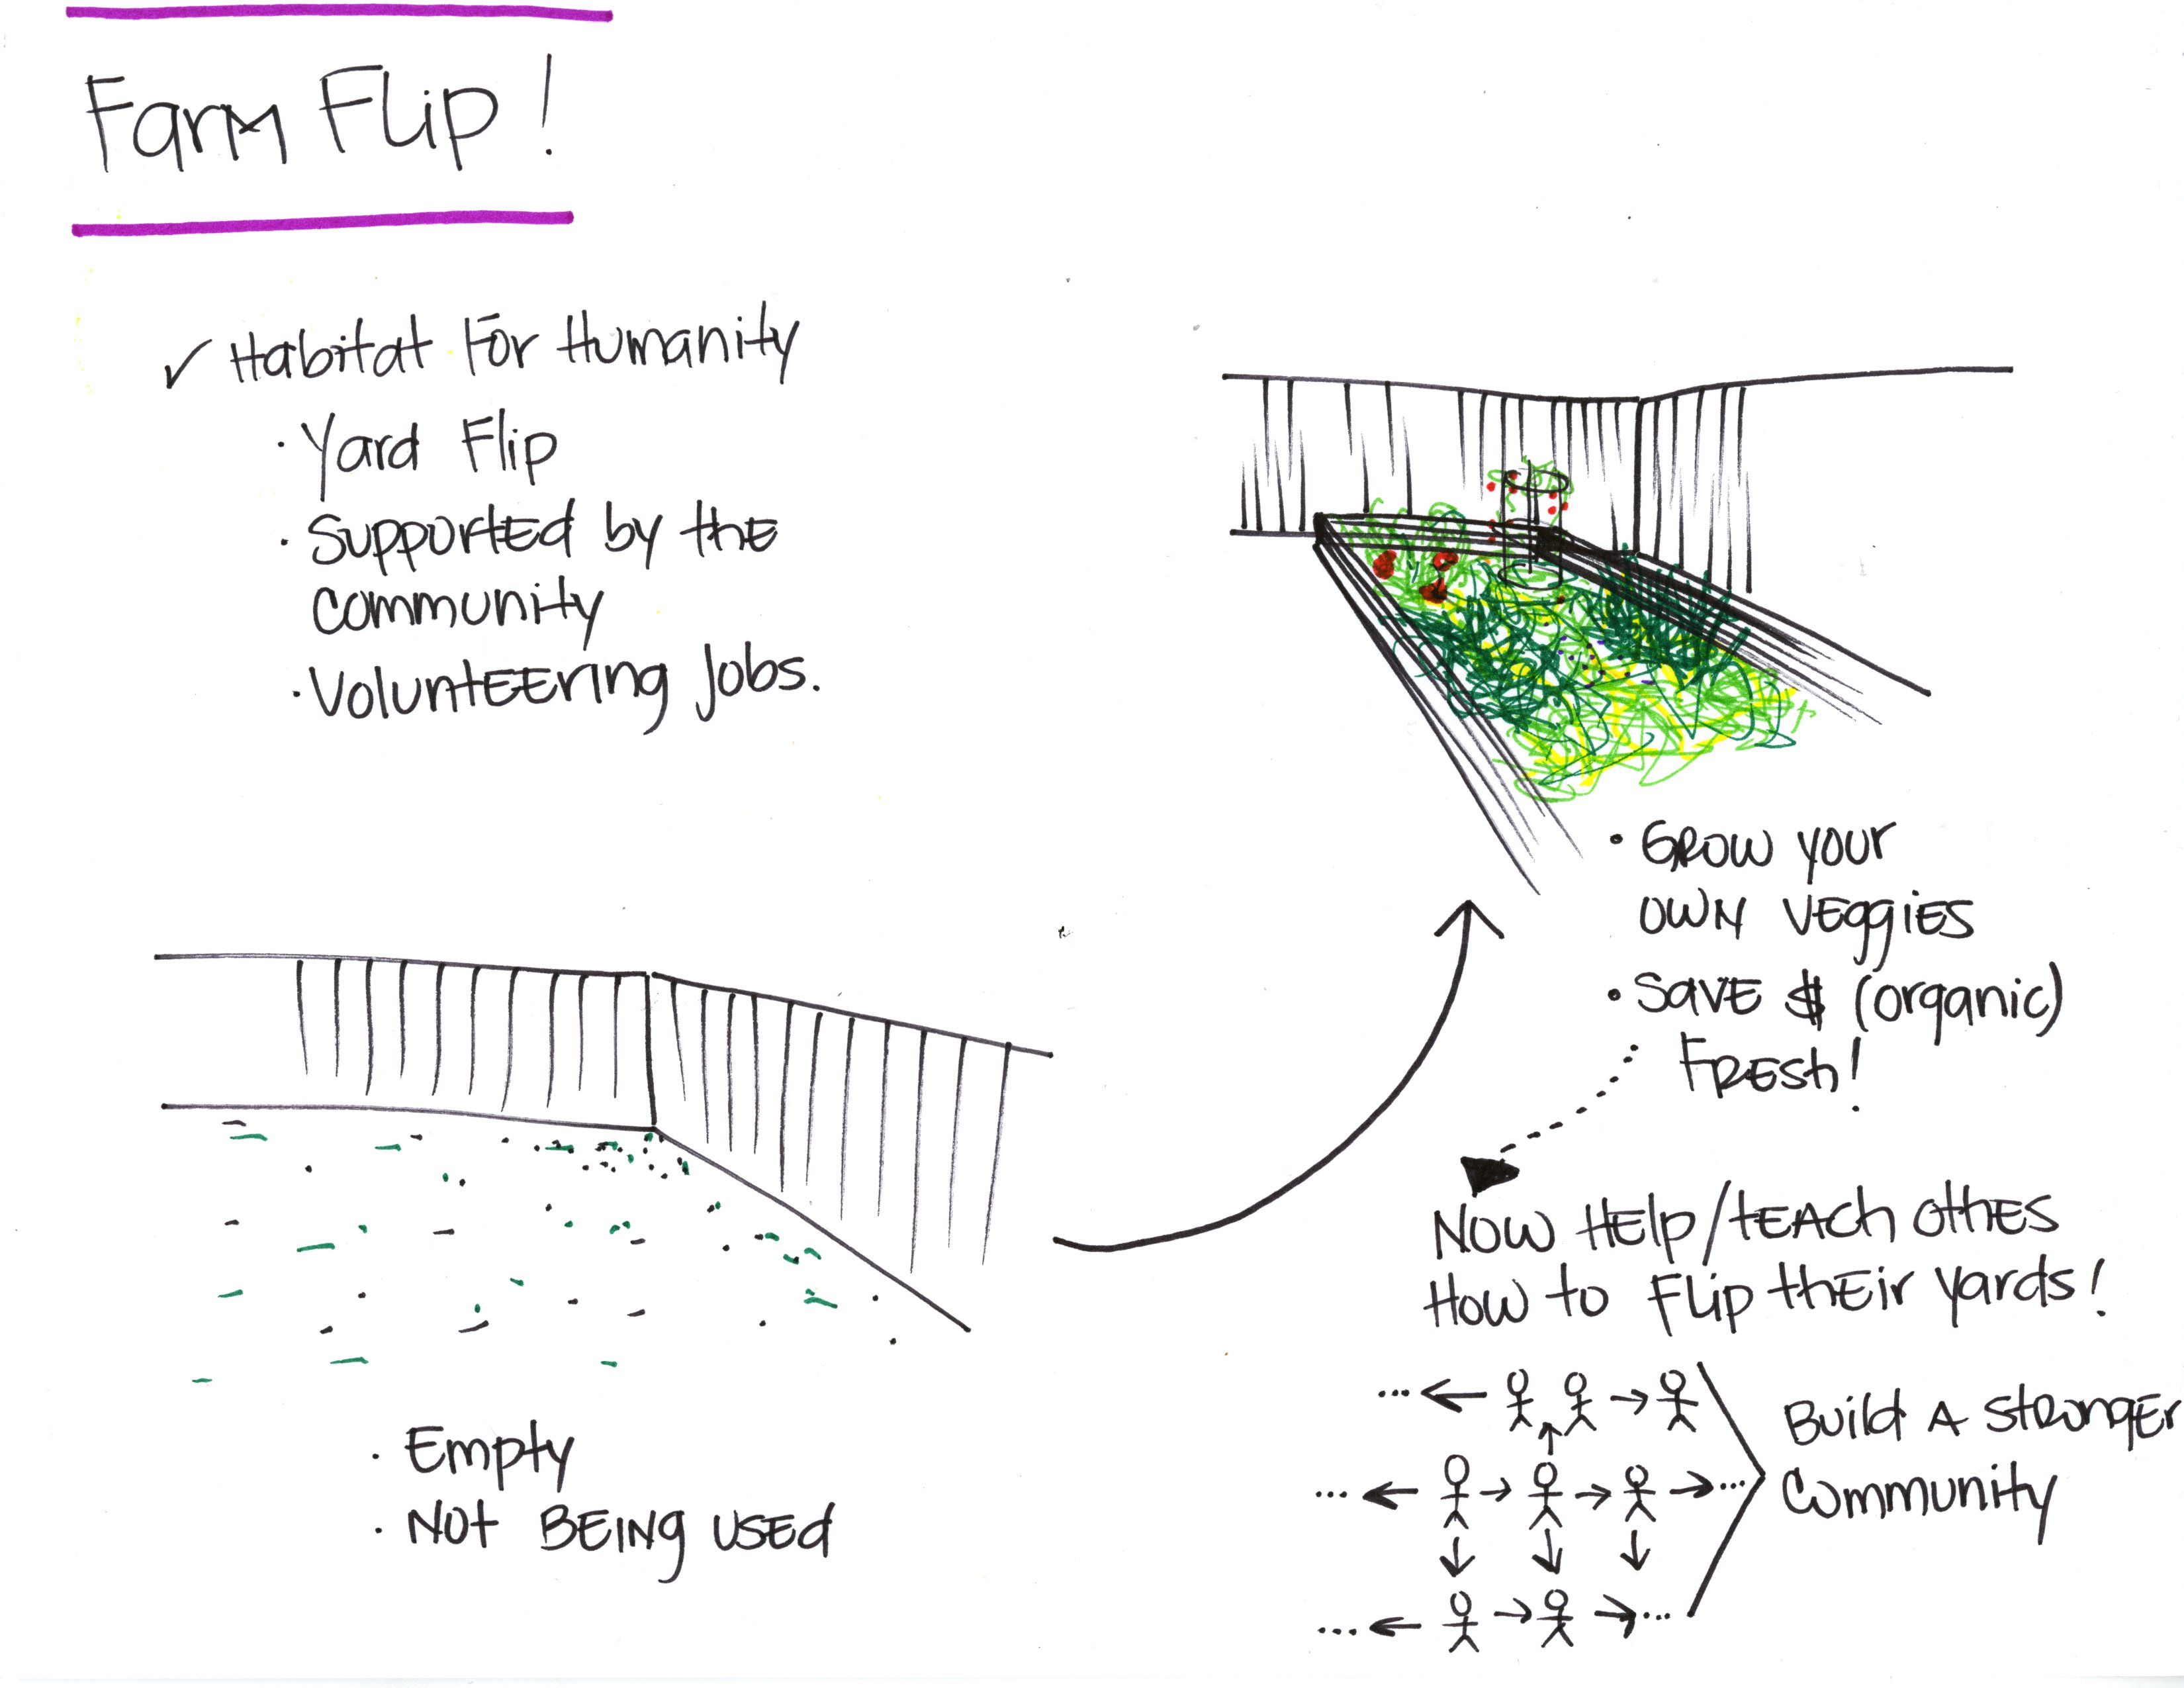 Farm Flip!
✓ Habitat For Humanity
· Yard Flip
· Supported by the
community
· Volunteering Jobs.
· Grow your
own veggies
· Save $ (organic)
Fresh!
Now Help/teach othes
How to Flip their yards!
Build A stronger
community
· Empty
· Not Being used